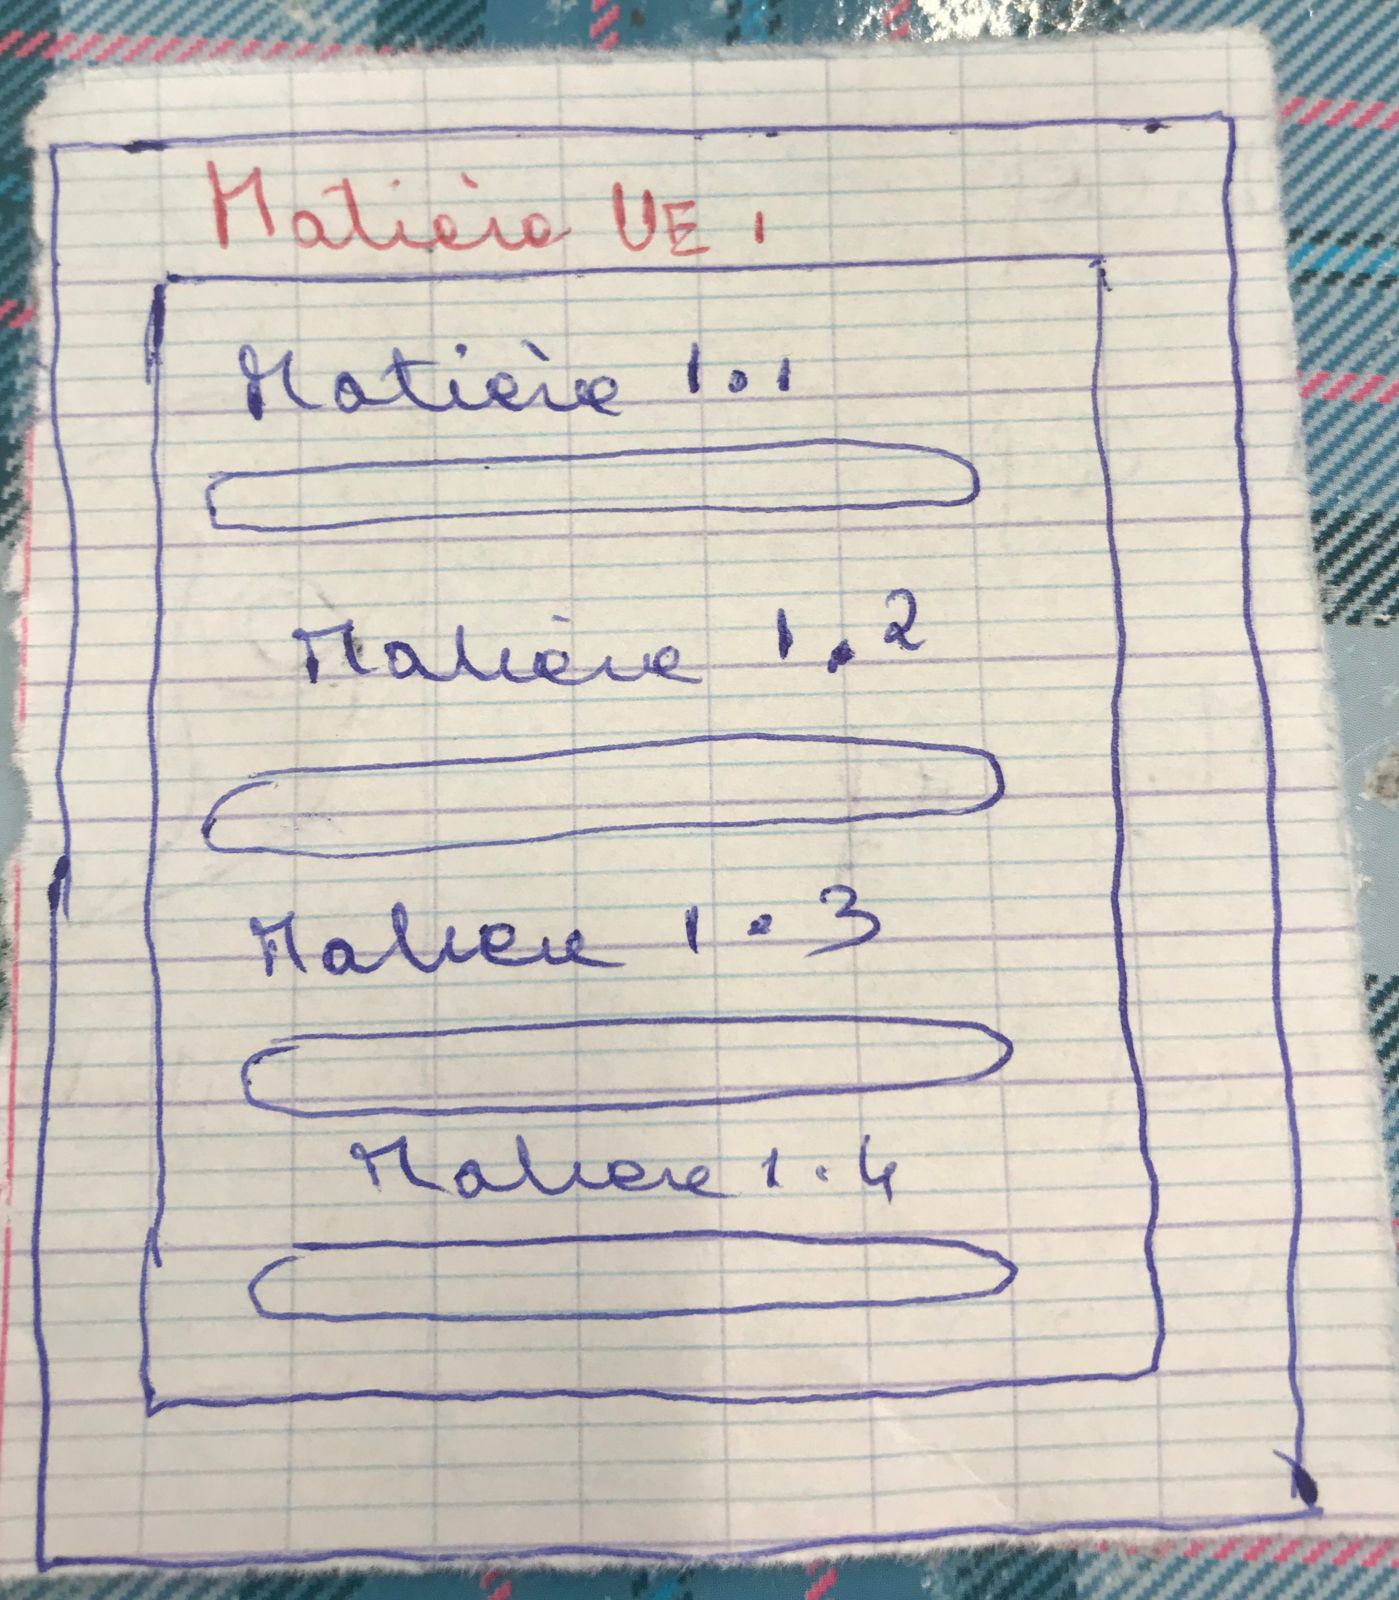 Matière UE 1
Matière 1.1
Matière 1.2
Matiere 1.3
Matiere 1.4